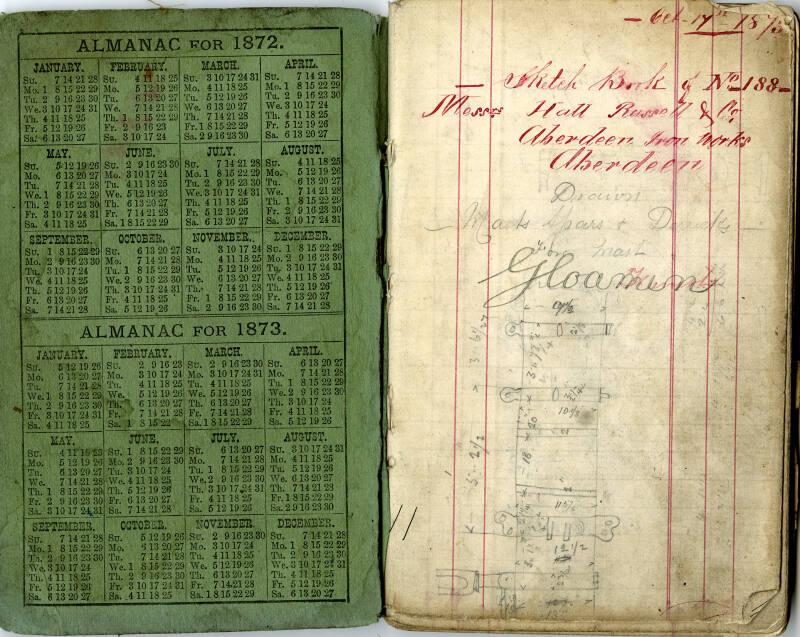 ALMANAC FOR 1872.
JANUARY. FEBRUARY. MARCH. APRIL.
Su. 7 14 21 28 Su. 4 11 18 25 Su. 3 10 17 24 31 Su. 7 14 21 28
Mo. 1 8 15 22 29 Mo. 5 12 19 26 Mo. 4 11 18 25 Mo. 1 8 15 22 29
Tu. 2 9 16 23 30 Tu. 6 13 20 27 Tu. 5 12 19 26 Tu. 2 9 16 23 30
We. 3 10 17 24 31 We. 7 14 21 28 We. 6 13 20 27 We. 3 10 17 24
Th. 4 11 18 25 Th. 1 8 15 22 29 Th. 7 14 21 28 Th. 4 11 18 25
Fr. 5 12 19 26 Fr. 2 9 16 23 Fr. 1 8 15 22 29 Fr. 5 12 19 26
Sa. 6 13 20 27 Sa. 3 10 17 24 Sa. 2 9 16 23 30 Sa. 6 13 20 27
MAY. JUNE. JULY. AUGUST.
Su. 5 12 19 26 Su. 2 9 16 23 30 Su. 7 14 21 28 Su. 4 11 18 25
Mo. 6 13 20 27 Mo. 3 10 17 24 Mo. 1 8 15 22 29 Mo. 5 12 19 26
Tu. 7 14 21 28 Tu. 4 11 18 25 Tu. 2 9 16 23 30 Tu. 6 13 20 27
We. 1 8 15 22 29 We. 5 12 19 26 We. 3 10 17 24 31 We. 7 14 21 28
Th. 2 9 16 23 30 Th. 6 13 20 27 Th. 4 11 18 25 Th. 1 8 15 22 29
Fr. 3 10 17 24 31 Fr. 7 14 21 28 Fr. 5 12 19 26 Fr. 2 9 16 23 30
Sa. 4 11 18 25 Sa. 1 8 15 22 29 Sa. 6 13 20 27 Sa. 3 10 17 24 31
SEPTEMBER. OCTOBER. NOVEMBER. DECEMBER.
Su. 1 8 15 22 29 Su. 6 13 20 27 Su. 3 10 17 24 Su. 1 8 15 22 29
Mo. 2 9 16 23 30 Mo. 7 14 21 28 Mo. 4 11 18 25 Mo. 2 9 16 23 30
Tu. 3 10 17 24 Tu. 1 8 15 22 29 Tu. 5 12 19 26 Tu. 3 10 17 24 31
We. 4 11 18 25 We. 2 9 16 23 30 We. 6 13 20 27 We. 4 11 18 25
Th. 5 12 19 26 Th. 3 10 17 24 31 Th. 7 14 21 28 Th. 5 12 19 26
Fr. 6 13 20 27 Fr. 4 11 18 25 Fr. 1 8 15 22 29 Fr. 6 13 20 27
Sa. 7 14 21 28 Sa. 5 12 19 26 Sa. 2 9 16 23 30 Sa. 7 14 21 28
ALMANAC FOR 1873.
JANUARY. FEBRUARY. MARCH. APRIL.
Su. 5 12 19 26 Su. 2 9 16 23 Su. 2 9 16 23 30 Su. 6 13 20 27
Mo. 6 13 20 27 Mo. 3 10 17 24 Mo. 3 10 17 24 31 Mo. 7 14 21 28
Tu. 7 14 21 28 Tu. 4 11 18 25 Tu. 4 11 18 25 Tu. 1 8 15 22 29
We. 1 8 15 22 29 We. 5 12 19 26 We. 5 12 19 26 We. 2 9 16 23 30
Th. 2 9 16 23 30 Th. 6 13 20 27 Th. 6 13 20 27 Th. 3 10 17 24
Fr. 3 10 17 24 31 Fr. 7 14 21 28 Fr. 7 14 21 28 Fr. 4 11 18 25
Sa. 4 11 18 25 Sa. 1 8 15 22 Sa. 1 8 15 22 29 Sa. 5 12 19 26
MAY. JUNE. JULY. AUGUST.
Su. 4 11 18 25 Su. 1 8 15 22 29 Su. 6 13 20 27 Su. 3 10 17 24 31
Mo. 5 12 19 26 Mo. 2 9 16 23 30 Mo. 7 14 21 28 Mo. 4 11 18 25
Tu. 6 13 20 27 Tu. 3 10 17 24 Tu. 1 8 15 22 29 Tu. 5 12 19 26
We. 7 14 21 28 We. 4 11 18 25 We. 2 9 16 23 30 We. 6 13 20 27
Th. 1 8 15 22 29 Th. 5 12 19 26 Th. 3 10 17 24 31 Th. 7 14 21 28
Fr. 2 9 16 23 30 Fr. 6 13 20 27 Fr. 4 11 18 25 Fr. 1 8 15 22 29
Sa. 3 10 17 24 31 Sa. 7 14 21 28 Sa. 5 12 19 26 Sa. 2 9 16 23 30
SEPTEMBER. OCTOBER. NOVEMBER. DECEMBER.
Su. 7 14 21 28 Su. 5 12 19 26 Su. 2 9 16 23 30 Su. 7 14 21 28
Mo. 1 8 15 22 29 Mo. 6 13 20 27 Mo. 3 10 17 24 Mo. 1 8 15 22 29
Tu. 2 9 16 23 30 Tu. 7 14 21 28 Tu. 4 11 18 25 Tu. 2 9 16 23 30
We. 3 10 17 24 We. 1 8 15 22 29 We. 5 12 19 26 We. 3 10 17 24 31
Th. 4 11 18 25 Th. 2 9 16 23 30 Th. 6 13 20 27 Th. 4 11 18 25
Fr. 5 12 19 26 Fr. 3 10 17 24 31 Fr. 7 14 21 28 Fr. 5 12 19 26
Sa. 6 13 20 27 Sa. 4 11 18 25 Sa. 1 8 15 22 29 Sa. 6 13 20 27
Oct 17th 187
Sketch Book of No 188
Messrs Hall Russell & Co
Aberdeen Iron Works
Aberdeen
Drawn
Masts Spars &
Iron Mast
Gloaming
9 1/2
10 1/2
11 1/2
12 1/2